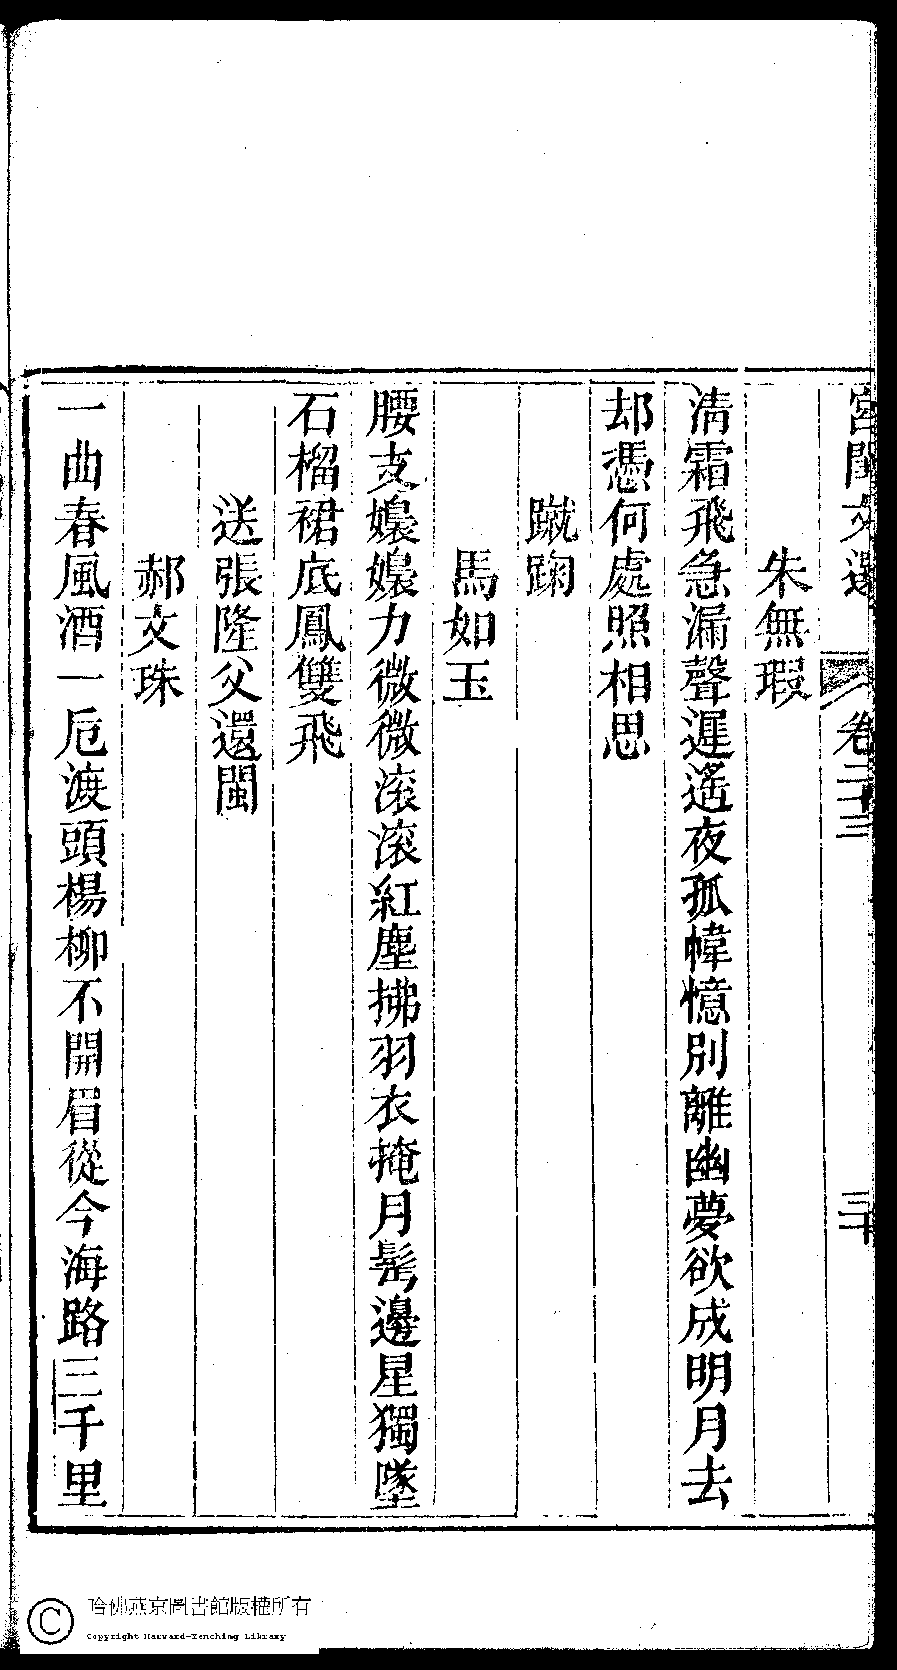 宮閨文選 卷二十三 三十
朱無瑕
淸霜飛急漏聲遲遙夜孤幃憶別離幽夢欲成明月去
却憑何處照相思
蹴踘
馬如玉
腰支嬝嬝力微微滚滚紅塵拂羽衣掩月髩邊星獨墜
石榴裙底鳳雙飛
送張隆父還閩
郝文珠
一曲春風酒一卮渡頭楊柳不開眉從今海路三千里
哈佛燕京圖書館版權所有
Copyright Harvard-Yenching Library